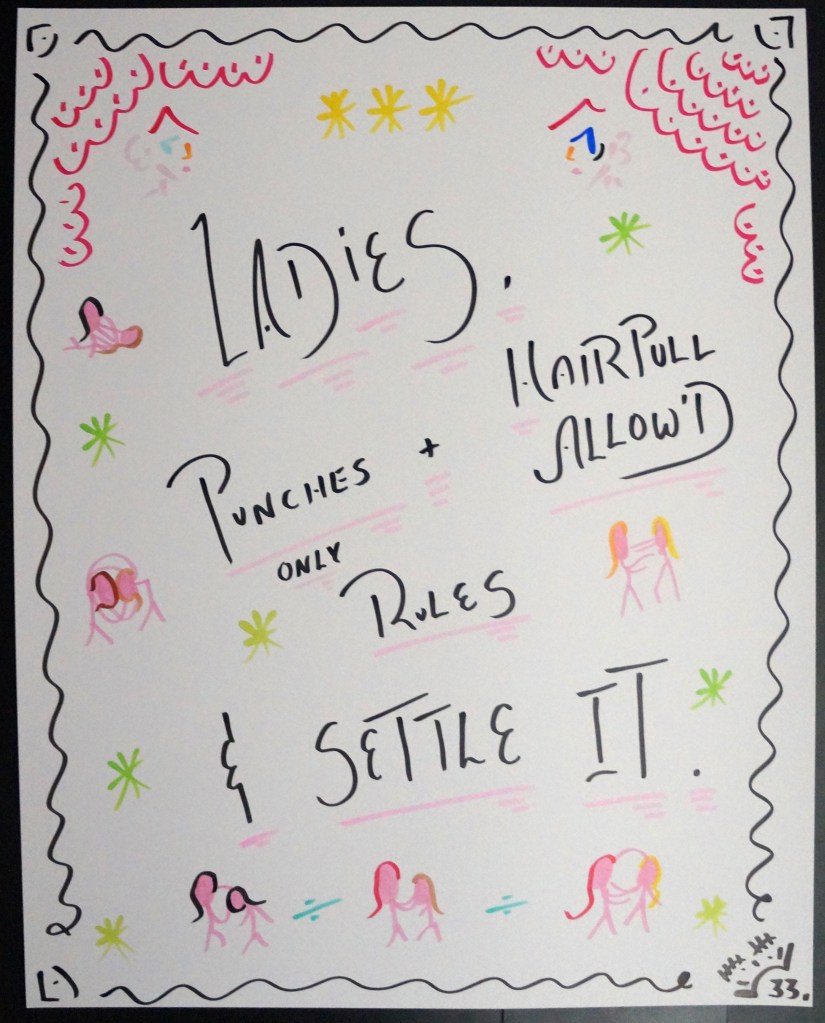 LADIES.
HAIRPULL
PUNCHES + ALLOW'D
ONLY
RULES
& SETTLE IT.
33.